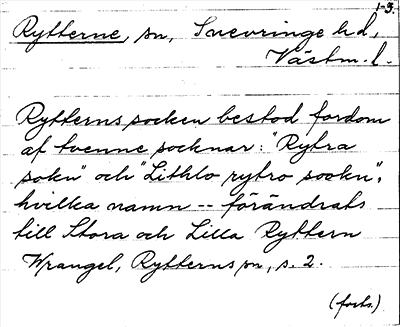 1-3.
Rytterne, sn, Snevringe hd,
Västm. l.
Rytterns socken bestod fordom
af tvenne socknar: "Rytra
sokn" och "Lithlo rytro sookn",
hvilka namn -- förändrats
till Stora och Lilla Ryttern
Wrangel, Rytterns sn, s. 2.
(forts.)